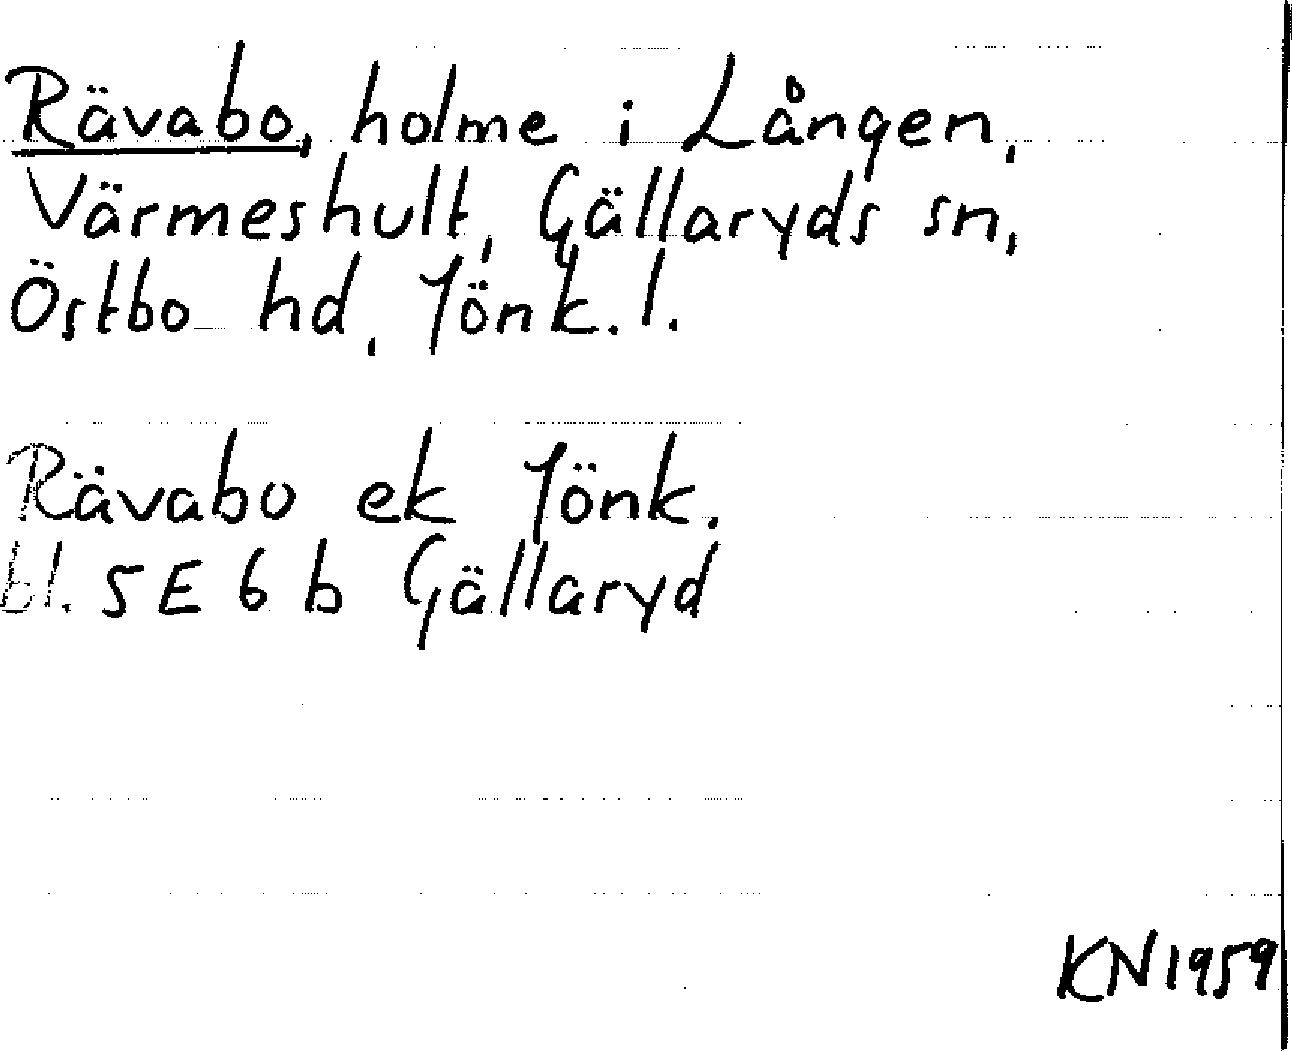 Rävabo, holme i Lången,
Värmeshult, Gällaryds sn,
Östbo hd, Jönk. l.
Rävabo ek Jönk.
bl. 5E 6 b Gällaryd
KN 1959